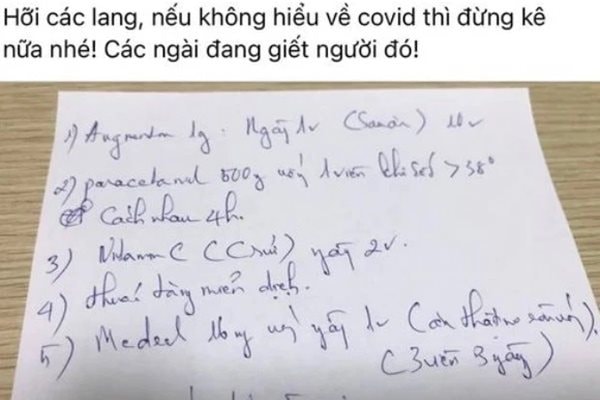 Hỡi các lang, nếu không hiểu về covid thì đừng kê
nữa nhé! Các ngài đang giết người đó!
1) Augmentin 1g : Ngày 1v
2) paracetamol 500g uống 1 viên khi sốt > 38°
Cách nhau 4h.
3) Vitamin C (C sủi) ngày 2v.
4) thuốc tăng miễn dịch.
5) Medrol 16mg uống ngày 1v
(3 viên 3 ngày)